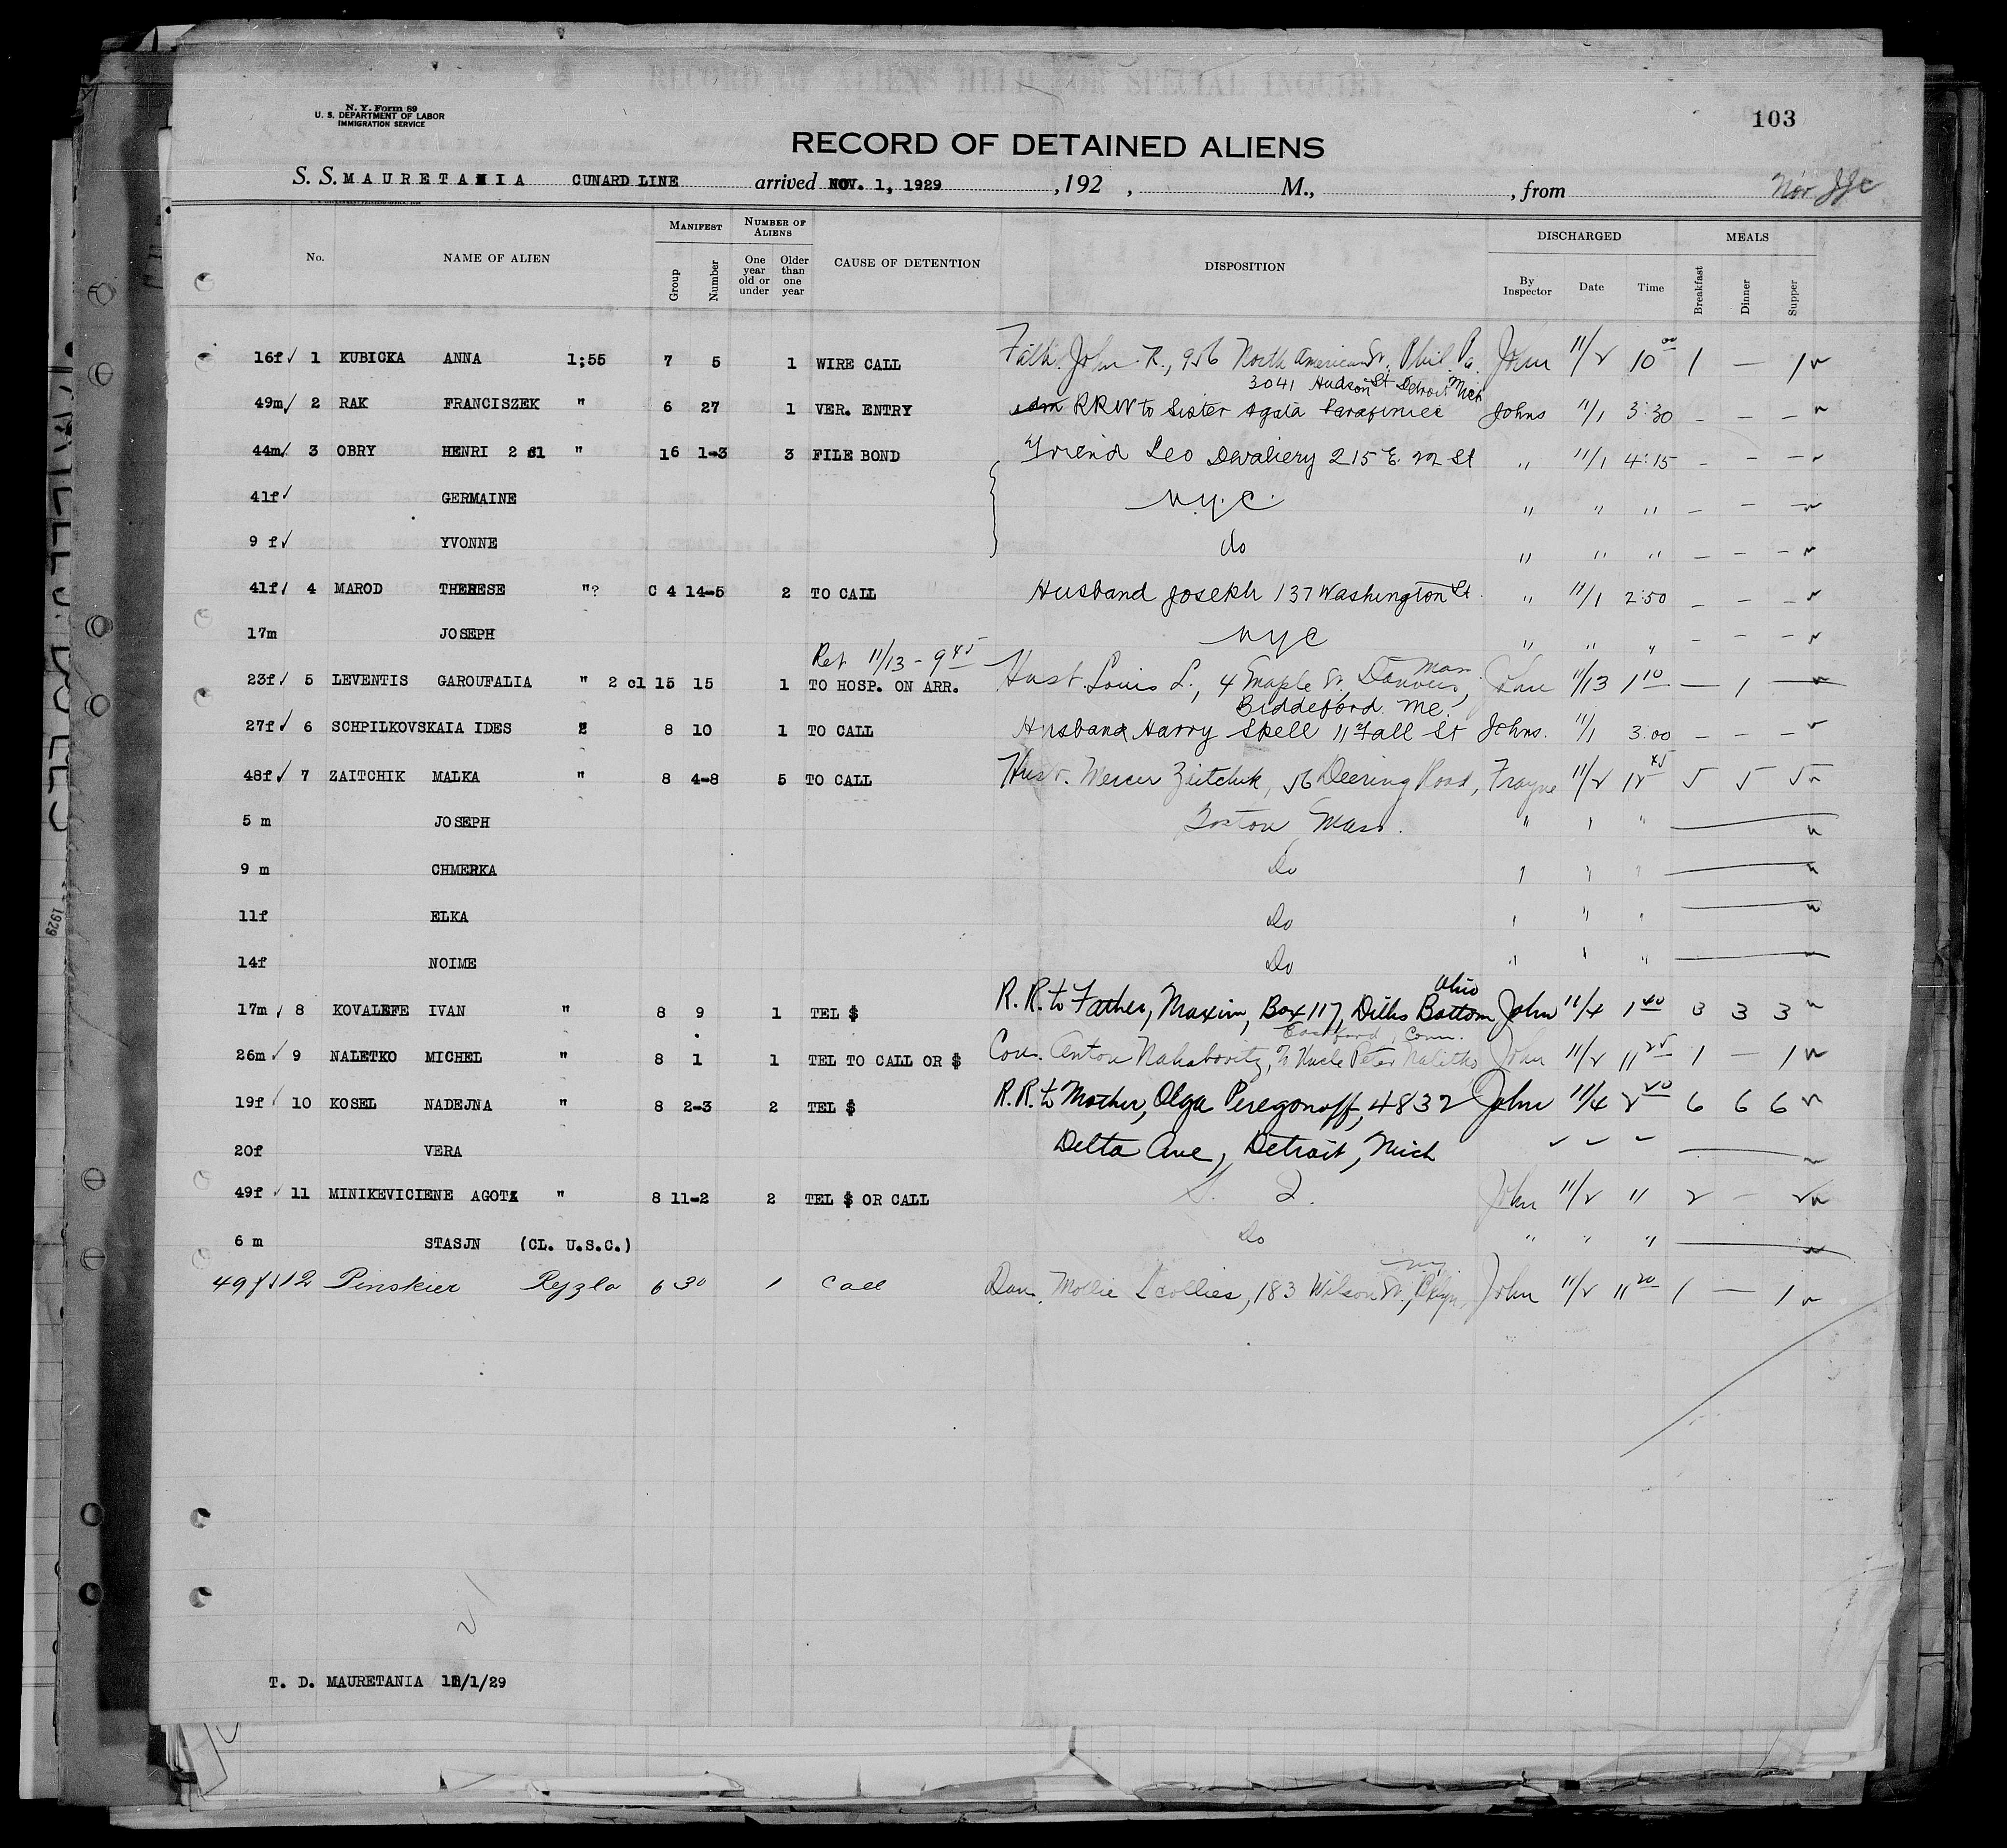 N. Y. Form 89
U. S. DEPARTMENT OF LABOR
IMMIGRATION SERVICE
103
RECORD OF DETAINED ALIENS
S. S. MAURETANIA CUNARD LINE arrived NOV. 1, 1929 , 192 , M., from
No. NAME OF ALIEN MANIFEST Group Number NUMBER OF ALIENS One year old or under Older than one year CAUSE OF DETENTION DISPOSITION DISCHARGED By Inspector Date Time MEALS Breakfast Dinner Supper
16f 1 KUBICKA ANNA 1;55 7 5 1 WIRE CALL Fath. John K., 956 North American St., Phil. Pa. John 11/2 10 00 1 — 1
3041 Hudson St Detroit Mich
49m 2 RAK FRANCISZEK " 6 27 1 VER. ENTRY RRW to Sister Agata Johns 11/1 3:30 - - -
44m 3 OBRY HENRI 2 cl " 16 1-3 3 FILE BOND Friend Leo 215 E. St " 11/1 4:15 - - -
41f GERMAINE N.Y.C. " " " - - -
9 f YVONNE do " " " - - -
41f 4 MAROD THERESE "? C 4 14-5 2 TO CALL Husband Joseph 137 Washington St " 11/1 2:50 - - -
17m JOSEPH NYC " " " - - -
Ret 11/13 - 9 45 Mass
23f 5 LEVENTIS GAROUFALIA " 2 cl 15 15 1 TO HOSP. ON ARR. Husb. Louis L., 4 Maple St., Danvers, John 11/13 1 10 — 1 —
Biddeford Me.
27f 6 SCHPILKOVSKAIA IDES " 8 10 1 TO CALL Husband Harry Spell 11 Fall St Johns. 11/1 3:00 - - -
48f 7 ZAITCHIK MALKA " 8 4-8 5 TO CALL Husb. Zeitchik, 56 Deering Road, Frayne 11/2 12 45 5 5 5
5 m JOSEPH Boston Mass. " " "
9 m CHMERKA Do " " "
11f ELKA Do " " "
14f NOIME Do " " "
Ohio
17m 8 KOVALEFE IVAN " 8 9 1 TEL $ R.R. to Father, Maxim, Box 117, Dilles Bottom John 11/4 1 40 3 3 3
Eastford, Conn.
26m 9 NALETKO MICHEL " 8 1 1 TEL TO CALL OR $ Cous. Anton Uncle Peter John 11/2 11 25 1 — 1
19f 10 KOSEL NADEJNA " 8 2-3 2 TEL $ R.R. to Mother, Olga Peregonoff, 4832 John 11/4 2 20 6 6 6
20f VERA Delta Ave, Detroit, Mich
49f 11 MINIKEVICIENE AGOTA " 8 11-2 2 TEL $ OR CALL John 11/2 11 2 - 2
6 m STASJN (CL. U.S.C.) Do " " "
49f 12 Pinskier Ryzla 6 30 1 Call Dau. Mollie 183 Wilson St., Bklyn, John 11/2 11 20 1 — 1
T. D. MAURETANIA 11/1/29